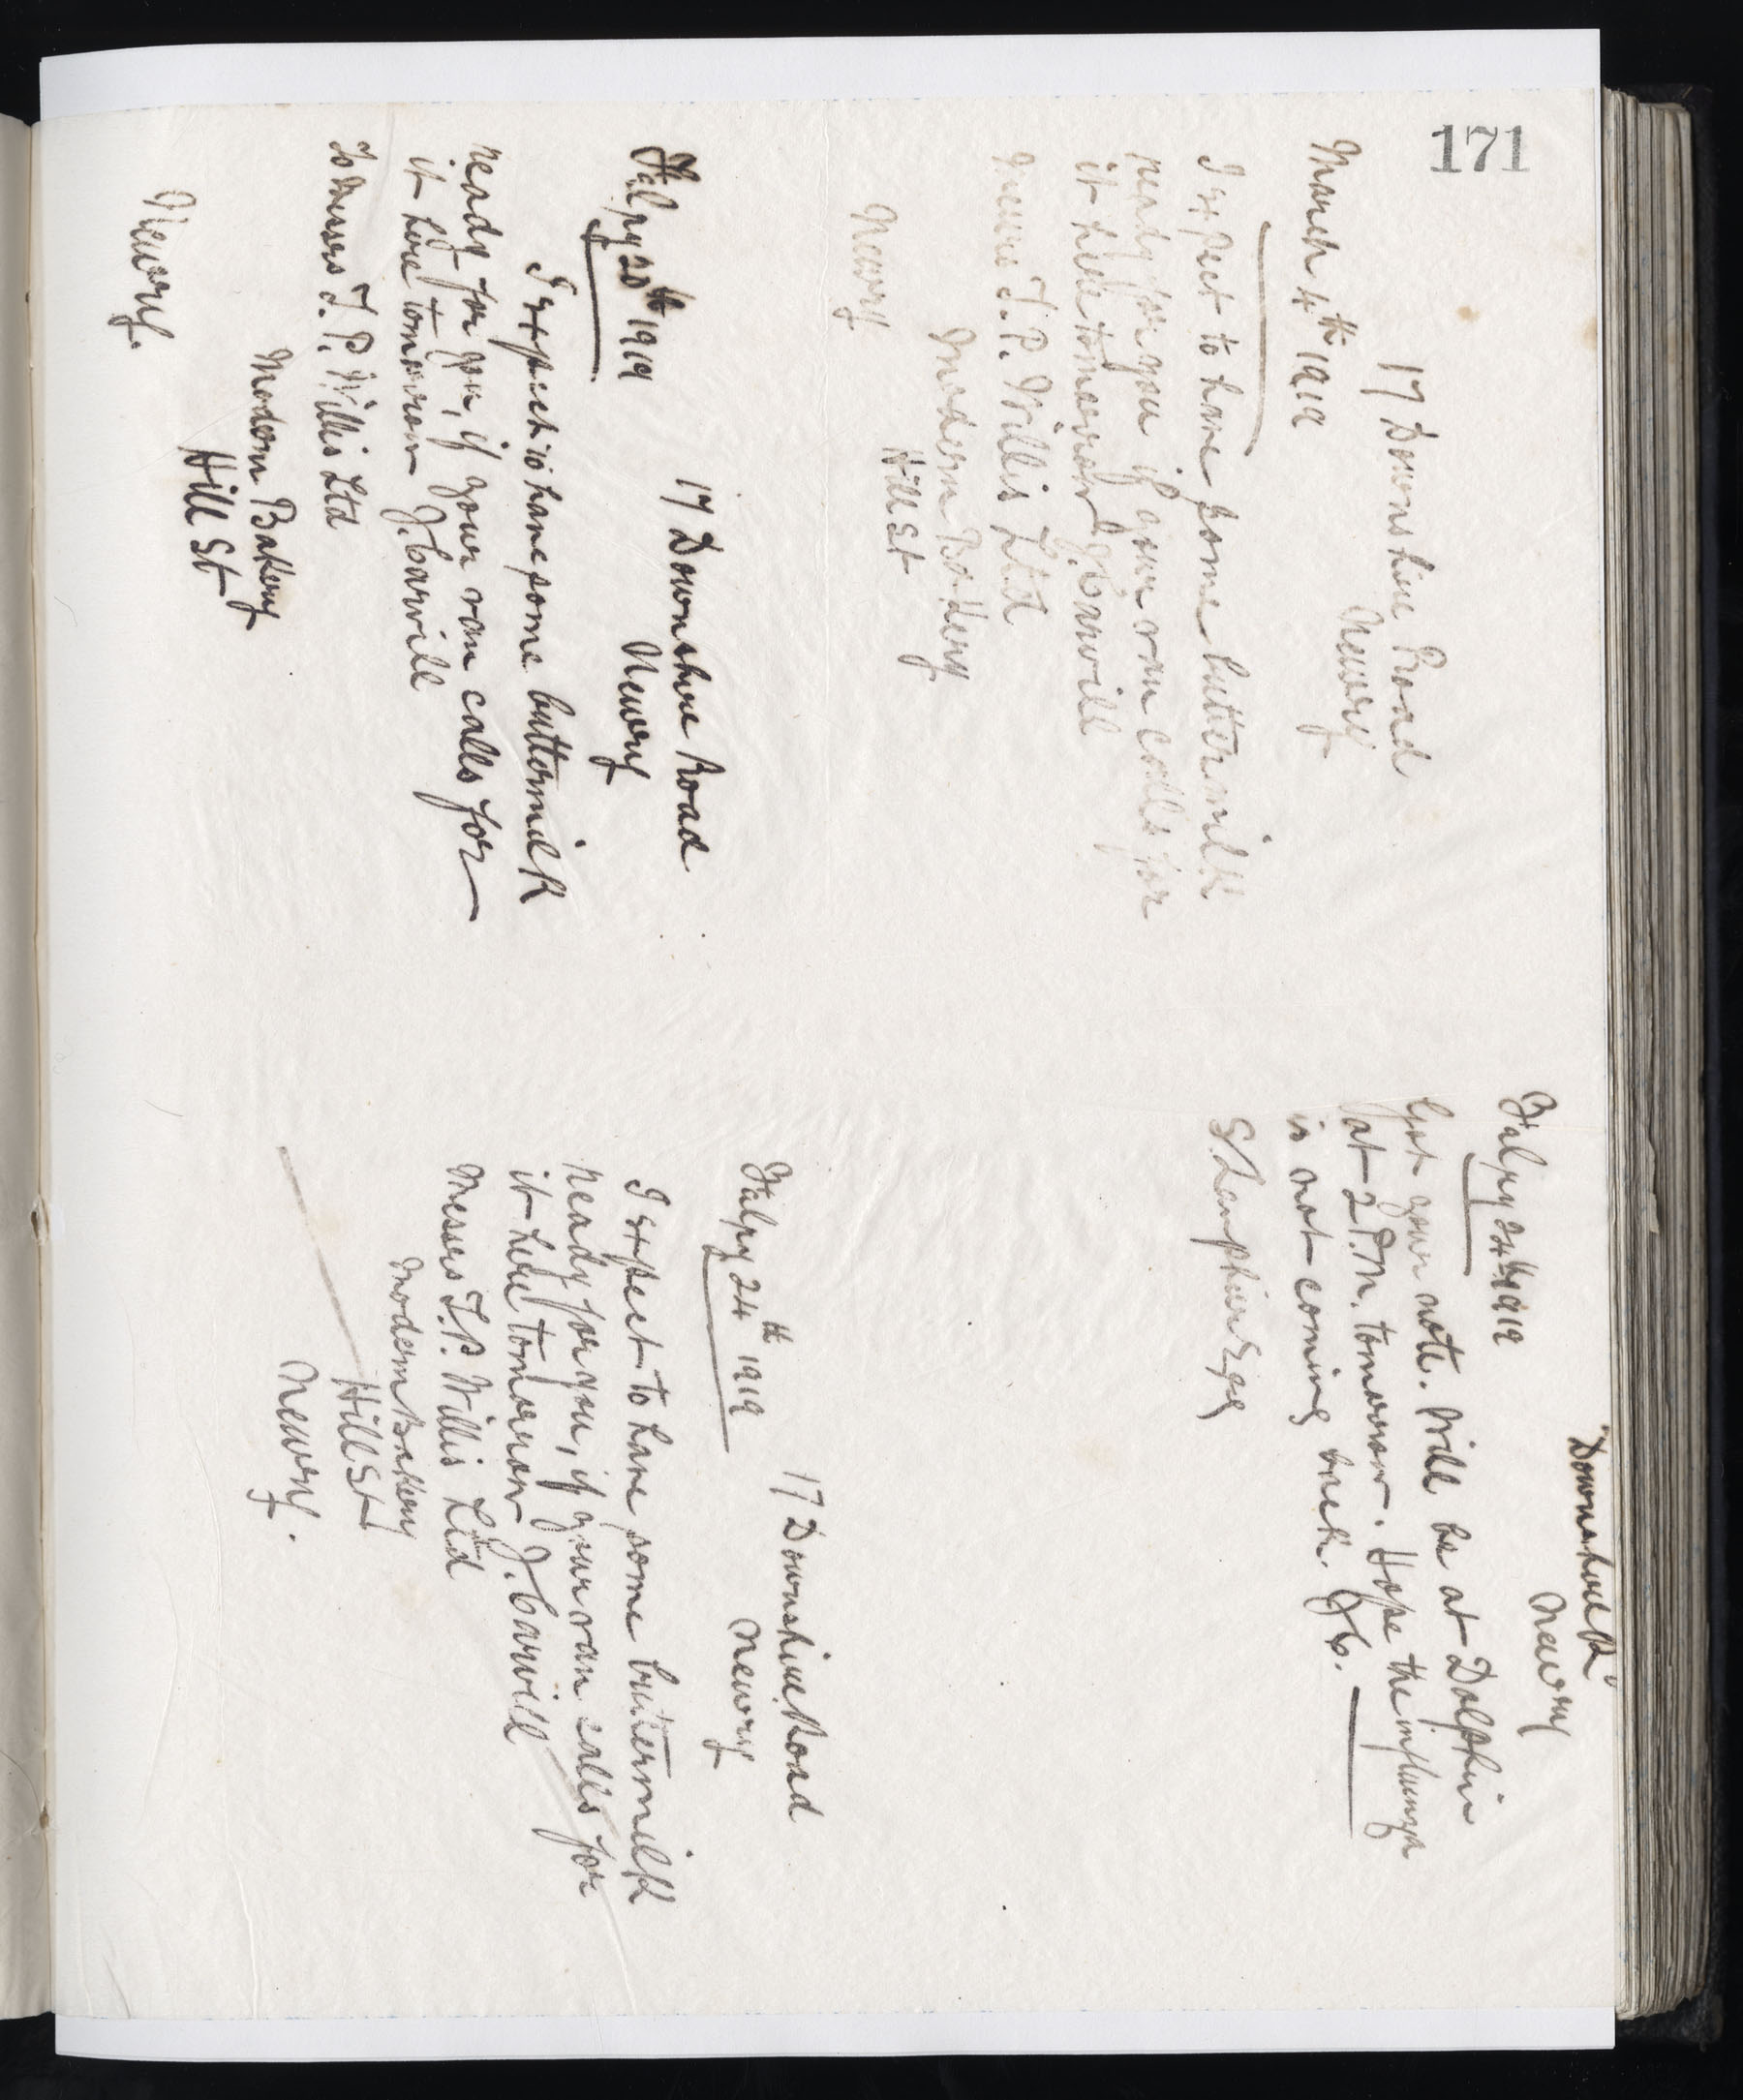 171
17 Downshire Road
Newry
March 4th 1919
I expect to have some buttermilk
ready for you if your van calls for
it here tomorrow J. Carvill
Messrs J. P. Willis Ltd
Modern Bakery
Hill St
Newry
17 Downshire Road
Newry
1919
I expect to have some buttermilk
ready for you, if your van calls for
it here tomorrow J. Carvill
To Messrs J. P. Willis Ltd
Modern Bakery
Hill St
Newry.
Downshire Rd
Newry
1919
Got your note. Will be at Dolphin
at 2 P.M. tomorrow. Hope the influenza
is not coming back. JC.
Esqr
17 Downshire Road
Newry
24th 1919
I expect to have some buttermilk
ready for you, if your van calls for
it here tomorrow J. Carvill
Messrs J. P. Willis Ltd
Modern Bakery
Hill St
Newry.